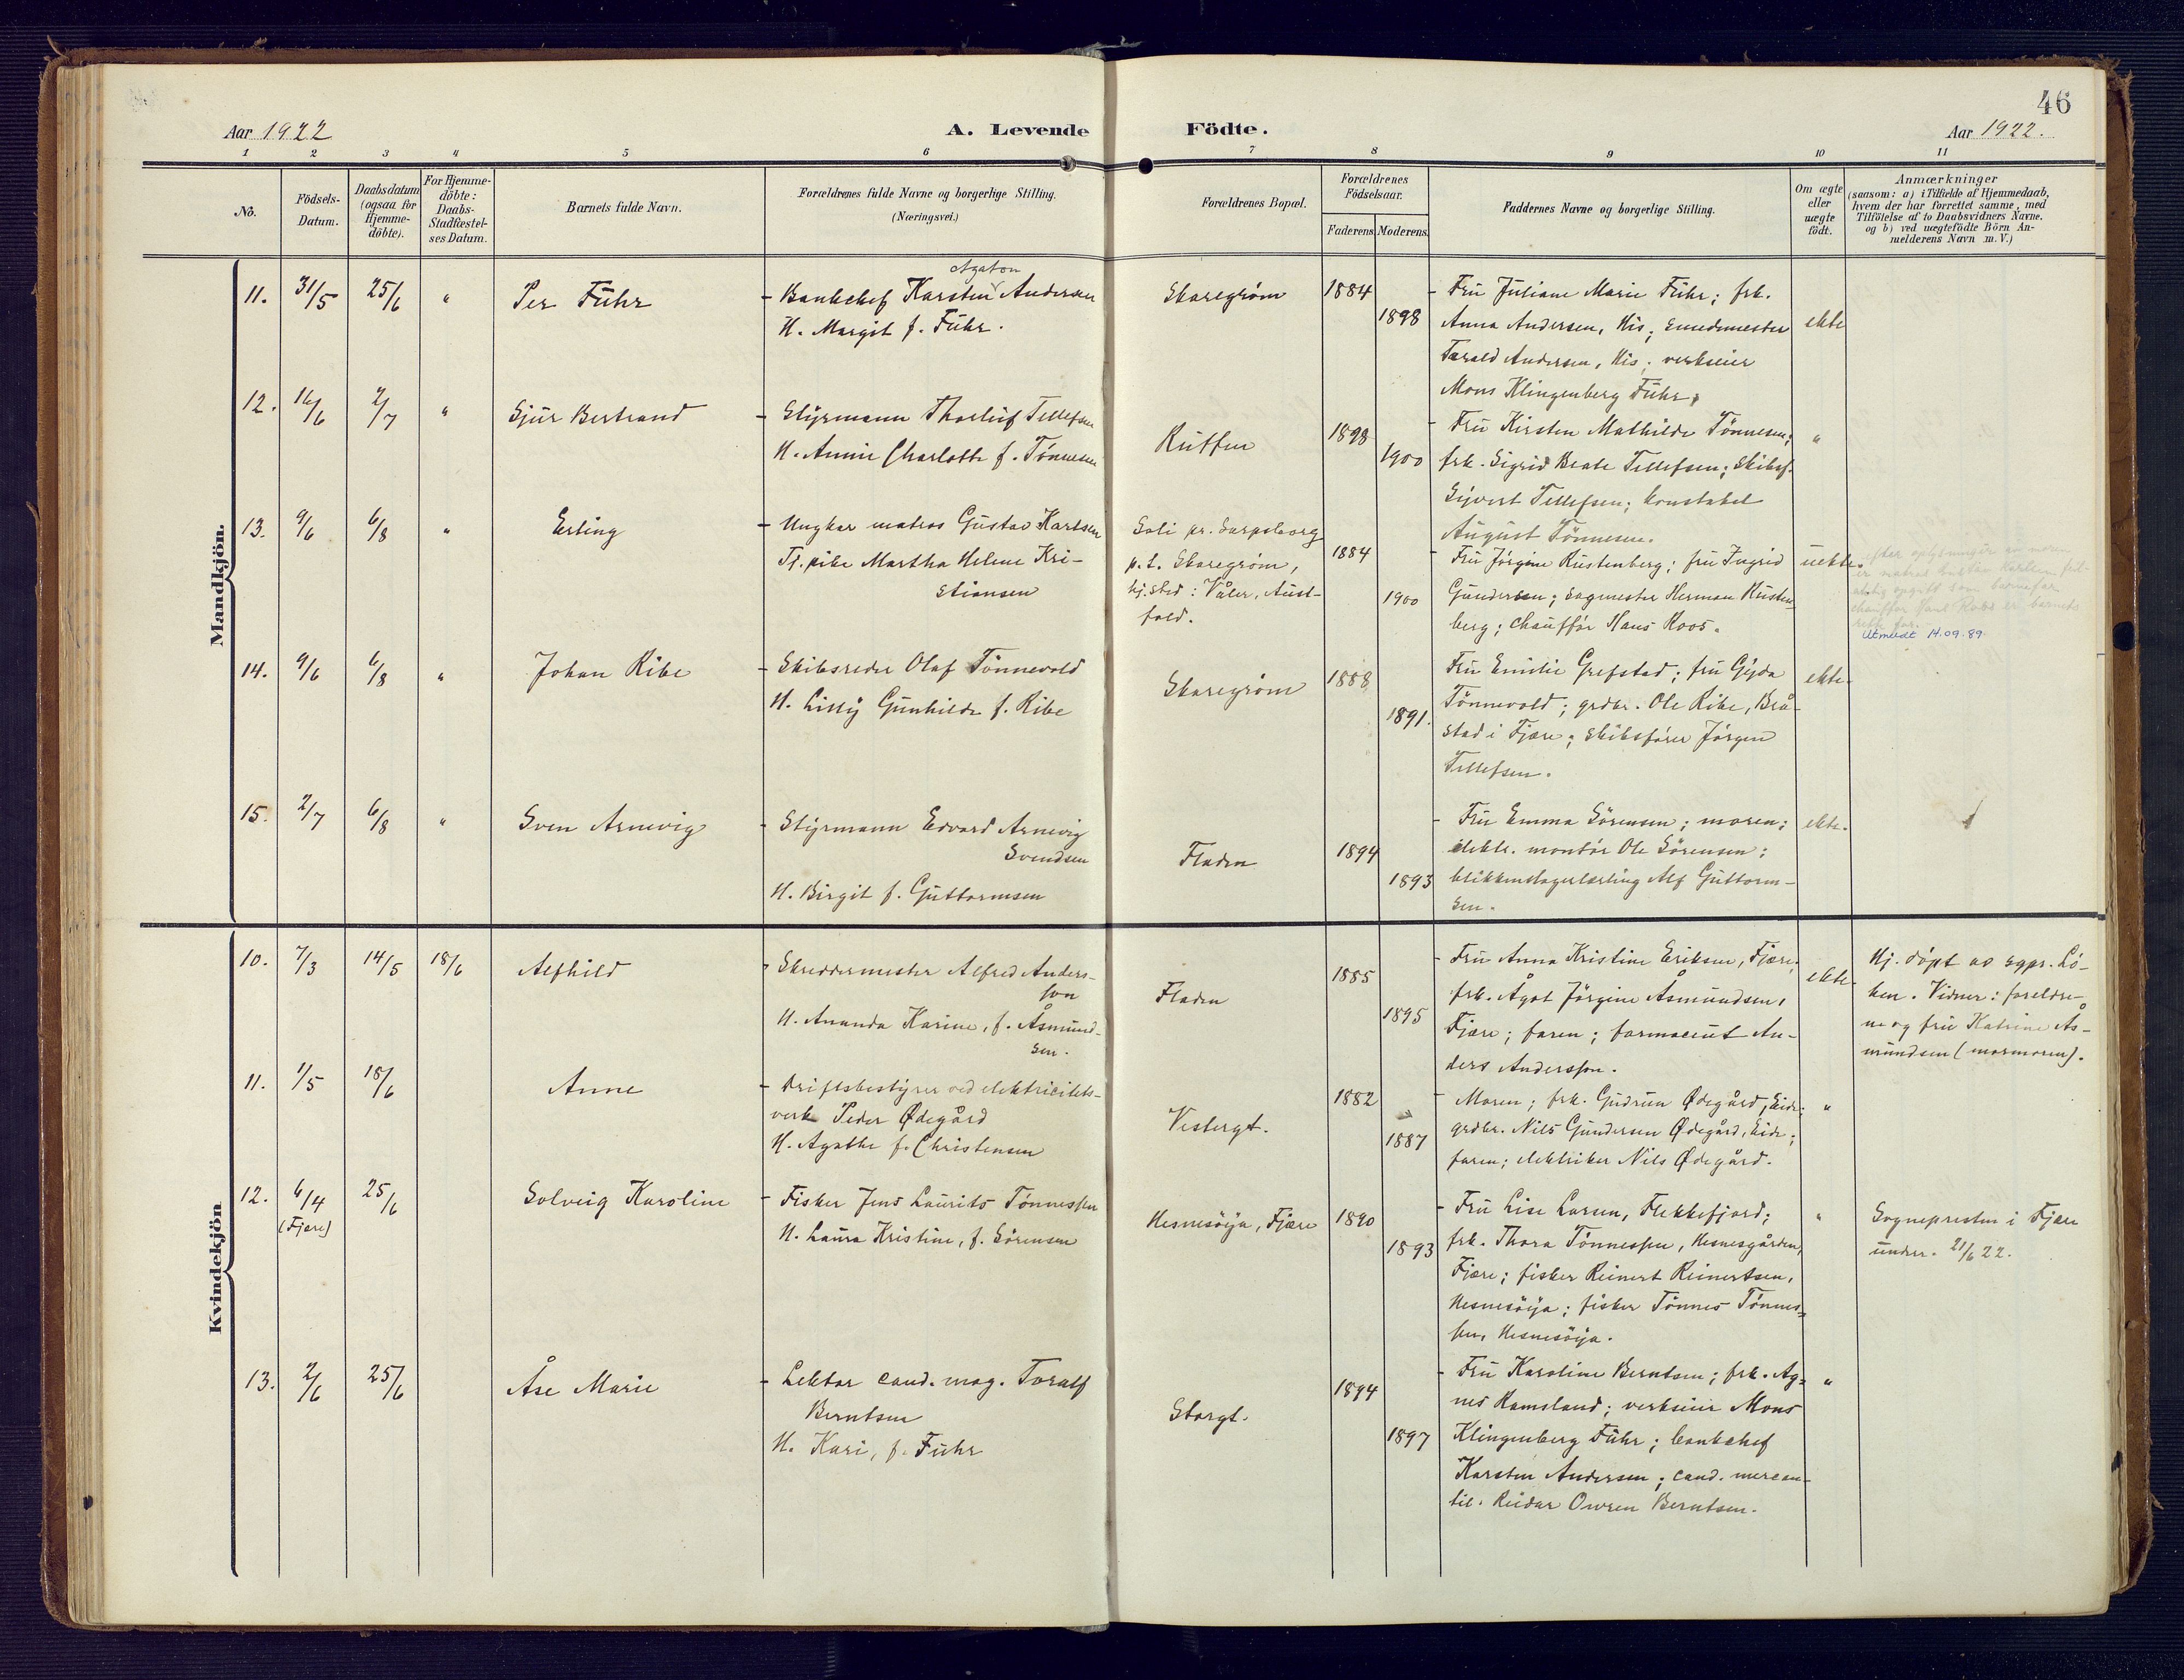 46
Aar 1922
A. Levende Födte.
Aar 1922.
1 2 3 4 5 6 7 8 9 10 11
No.
Födsels-
Datum.
Daabsdatum
(ogsaa for
Hjemme-
döbte).
For Hjemme-
döbte:
Daabs-
Stadfæstel-
ses Datum.
Barnets fulde Navn.
Forældrenes fulde Navne og borgerlige Stilling.
(Næringsvei.)
Forældrenes Bopæl.
Forældrenes
Födselsaar.
Faderens. Moderens.
Faddernes Navne og borgerlige Stilling.
Om ægte
eller
uægte
födt.
Anmærkninger
(saasom: a) i Tilfælde af Hjemmedaab,
hvem der har forrettet samme, med
Tilföielse af to Daabsvidners Navne.
og b) ved uægtefödte Börn An-
melderens Navn m. V.)
Mandkjön.
11. 31/5 25/6 " Per Führ
Agaton
- Bankchef Karsten Andersen
H. Margit f. Führ.
Skaregrøm 1884
1898
- Fru Juliane Marie Führ; frk.
Anna Andersen, His; smedmester
Tarald Andersen, His; verkseier
Mons Klingenberg Führ.
ekte
12. 16/6 2/7 " Sjur Bertrand
- Styrmann Thorleif Tellefsen
H. Annie Charlotte f. Tönnesen
Ruffen 1898
1900
- Fru Kirsten Mathilde Tönnesen;
frk. Sigrid Beate Tellefsen; Skibsf.
Sijvert Tellefsen; konstabel
August Tönnesen.
"
13. 9/6 6/8 " Erling
- Ungkar matros Gustav Karlsen
Tj. pike Martha Helene Kri-
stiansen
Soli pr. Sarpsborg
p.t. Skaregrøm,
hj.sted: Våler, Aust-
fold.
1884
1900
- Fru Jörgine Rustenberg; fru Ingrid
Gundersen; sagmester Herman Rusten-
berg; chauffør Hans Roos.
uekte.
Utmeldt 14.09.89.
14. 9/6 6/8 " Johan Ribe
- Skibsreder Olaf Tönnevold
H. Lissy Gunhilde f. Ribe
Skaregrøm 1888
1891.
Fru Emilie Grefstad; fru Gyda
Tönnevold; grdbr. Ole Ribe, Brå-
stad i Fjære; skibsfører Jörgen
Tellefsen.
ekte.
15. 2/7 6/8 " Sven Arnevig
- Styrmann Edvard Arnevig
Svendsen
H. Birgit f. Guttormsen
Fladen 1894
1893
- Fru Emma Sörensen; moren;
elektr. montör Ole Sörensen;
blikkenslagerlærling Alf Guttorm-
sen.
ekte.
Kvindekjön
10. 7/3 14/5 18/6 Alfhild
- Skreddermester Alfred Anders-
son
H. Amanda Karine, f. Åsmund-
sen.
Fladen 1885
1895
- Fru Anna Kristine Eriksen, Fjære;
frk. Ågot Jörgine Åsmundsen,
Fjære; faren; farmaceut An-
ders Andersson.
ekte.
Hj. døpt av sgpr. Lö-
ken. Vidner: foreldre-
ne og fru Katrine Ås-
mundsen (mormoren).
11. 1/5 18/6 Anne
- Driftsbestyrer ved elektricitets-
verk Peder Ødegård
H. Agathe f. Christensen
Vestergt. 1882
1887
- Moren; frk. Gudrun Ødegård, Eide;
grdbr. Nils Gundersen Ødegård, Eide;
faren; elektriker Nils Ødegård.
"
12. 6/4 25/6 Solveig Karoline
(Fjære)
- Fisker Jens Laurits Tönnessen
H. Laura Kristine, f. Sörensen
Hesnesöija, Fjære 1890
1893
- Fru Lise Larsen, Flekkefjord;
frk. Thora Tönnessen, Hesnesgården,
Fjære; fisker Reinert Reinertsen,
Hesnesöija; fisker Tönnes Tönnes-
sen, Hesnesöija.
"
Sognepresten i Fjære
underr. 21/6 22.
13. 2/6 25/6 Åse Marie
- Lektor cand. mag. Toralf
Berntsen
H. Kari, f. Führ
Storgt. 1894
1897
- Fru Karoline Berntsen; frk. Ag-
nes Ramsland; verkseier Mons
Klingenberg Führ; bankchef
Karsten Andersen; cand. mercan-
til. Reidar Owren Berntsen.
"